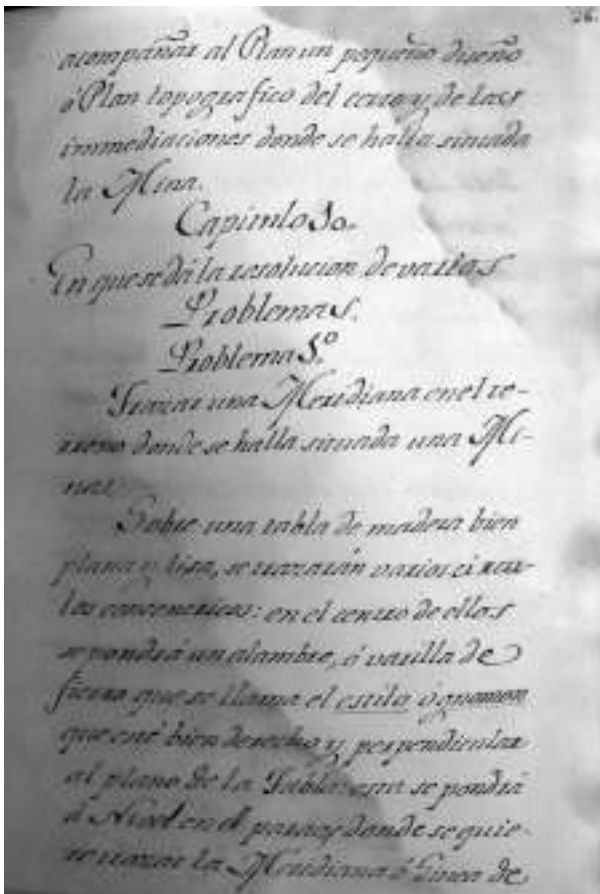 26.
acompañar al Plan un pequeño diseño
ó Plan topografico del cerro y de las
immediaciones donde se halla situada
la Mina.
Capitulo
En que se dá la resolucion de varios
Problemas.
Problema
Trazar una Meridiana en el te-
rreno donde se halla situada una Mi-
na.
Sobre una tabla de madera bien
plana y lisa, se trazarán varios circu-
los concentricos: en el centro de ellos
se pondrá un alambre, ó varilla de
fierro que se llama el estilo ó gnomon
que esté bien derecho y perpendicular
al plano de la Tabla: esta se pondrá
á Nivel en el parage donde se quie-
re trazar la Meridiana ó Linea de